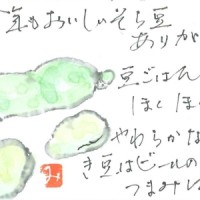 年もおいしいそら豆
ありが
豆ごはん
ほくほ
やわらかな
き豆はビールの
つまみに
み